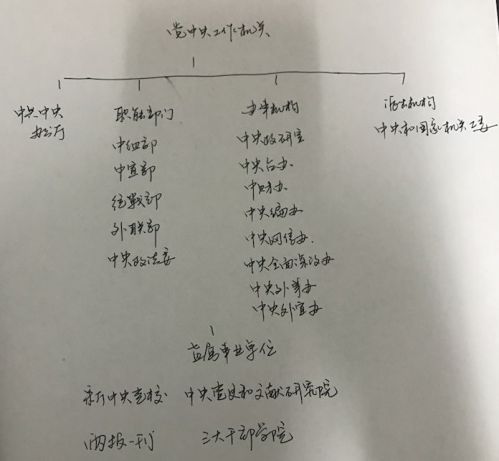 党中央工作机关
中共中央
办公厅
职能部门
中组部
中宣部
统战部
外联部
中央政法委
办事机构
中央政研室
中央台办
中财办
中央编办
中央网信办
中央全面深改办
中央外事办
中央外宣办
派出机构
中央和国家机关工委
直属事业单位
新中央党校 中央党史和文献研究院
两报一刊 三大干部学院